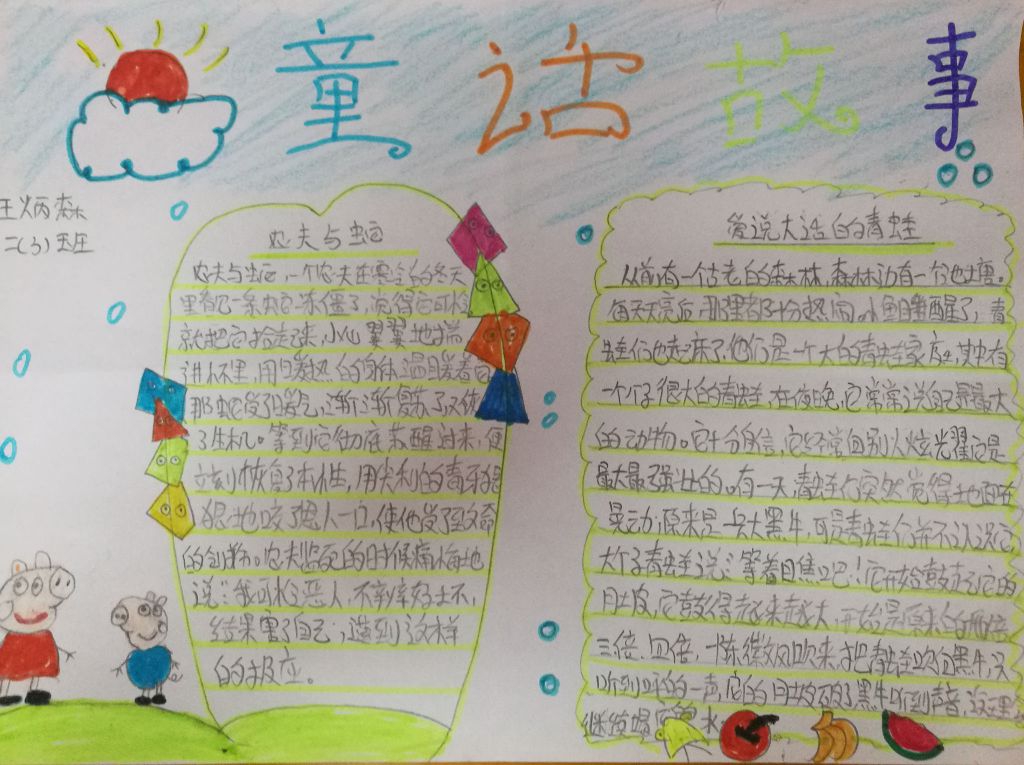 童话故事
王炳森
二(3)班
农夫与蛇
农夫与蛇,一个农夫在寒冷的冬天
里看见一条蛇冻僵了,觉得它可怜
就把它拾起来,小心翼翼地揣
进怀里,用暖热的身体温暖着它
那蛇受了暖气,渐渐复苏了,又恢
了生机。等到它彻底苏醒过来,便
立刻恢复了本性,用尖利的毒牙狠
狠地咬了恩人一口,使他受了致命
的创伤。农夫临死的时候痛悔地
说:"我可怜恶人,不辨好坏,
结果害了自己,遭到这样
的报应。
爱说大话的青蛙
从前有一个古老的森林,森林边有一个池塘。
每天天亮后,那里都十分热闹。小鱼睡醒了,青
蛙们也起床了,他们是一个大的青蛙家庭,其中有
一个个子很大的青蛙,在夜晚,它常常说自己是最大
的动物。它十分自信,它经常向别人炫耀它是
最大最强壮的。有一天,青蛙们突然觉得地面在
晃动,原来是一只大黑牛,可是青蛙们并不认识它
大个子青蛙说:等着瞧吧!它开始鼓起了它的
肚皮,它鼓得越来越大,开始是原来的两倍
三倍、四倍,一阵微风吹来,把青蛙吹向黑牛,只
听到呯的一声,它的肚皮破了,黑牛听到声音,
继续喝 水